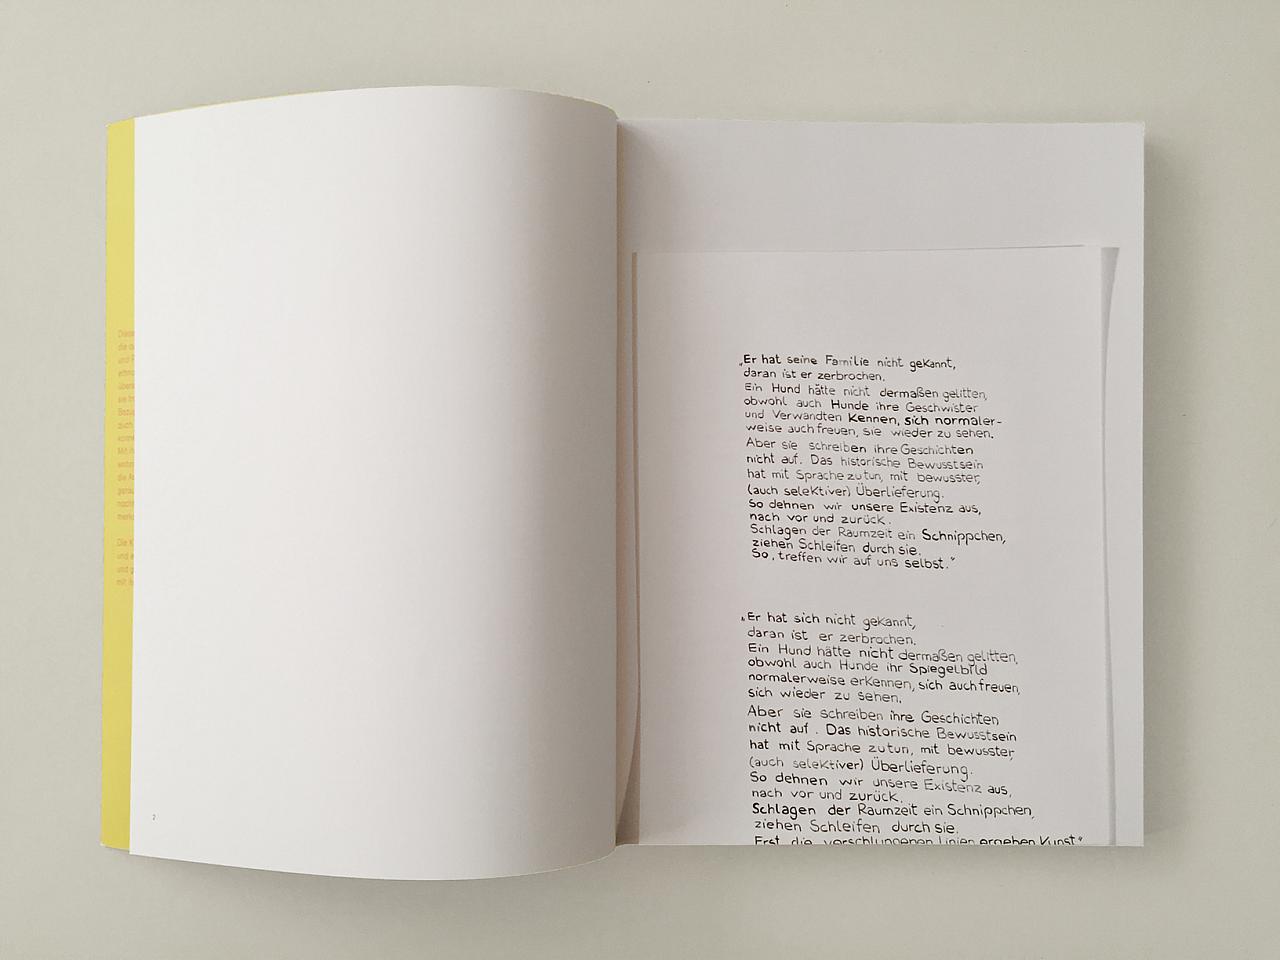 2
„Er hat seine Familie nicht gekannt,
daran ist er zerbrochen.
Ein Hund hätte nicht dermaßen gelitten,
obwohl auch Hunde ihre Geschwister
und Verwandten kennen, sich normaler-
weise auch freuen, sie wieder zu sehen.
Aber sie schreiben ihre Geschichten
nicht auf. Das historische Bewusstsein
hat mit Sprache zu tun, mit bewusster,
(auch selektiver) Überlieferung.
So dehnen wir unsere Existenz aus,
nach vor und zurück.
Schlagen der Raumzeit ein Schnippchen,
ziehen Schleifen durch sie.
So, treffen wir auf uns selbst.“
„Er hat sich nicht gekannt,
daran ist er zerbrochen.
Ein Hund hätte nicht dermaßen gelitten,
obwohl auch Hunde ihr Spiegelbild
normalerweise erkennen, sich auch freuen,
sich wieder zu sehen.
Aber sie schreiben ihre Geschichten
nicht auf. Das historische Bewusstsein
hat mit Sprache zu tun, mit bewusster,
(auch selektiver) Überlieferung.
So dehnen wir unsere Existenz aus,
nach vor und zurück.
Schlagen der Raumzeit ein Schnippchen,
ziehen Schleifen durch sie.
Erst die verschlungenen Linien ergeben Kunst“